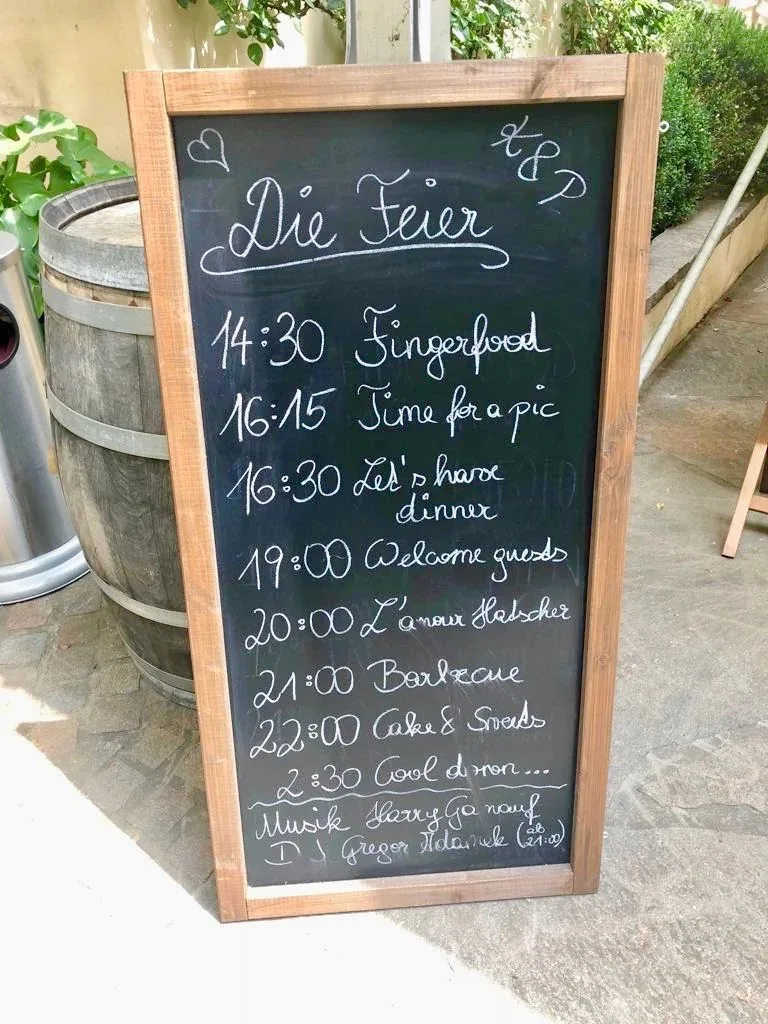 K & P
Die Feier
14:30 Fingerfood
16:15 Time for a pic
16:30 Let's have
dinner
19:00 Welcome guests
20:00 L'amour Hatscher
21:00 Barbecue
22:00 Cake & Sweets
2:30 Cool down...
Musik Harry Ganauf
DJ Gregor Adamek (ab
21:00)